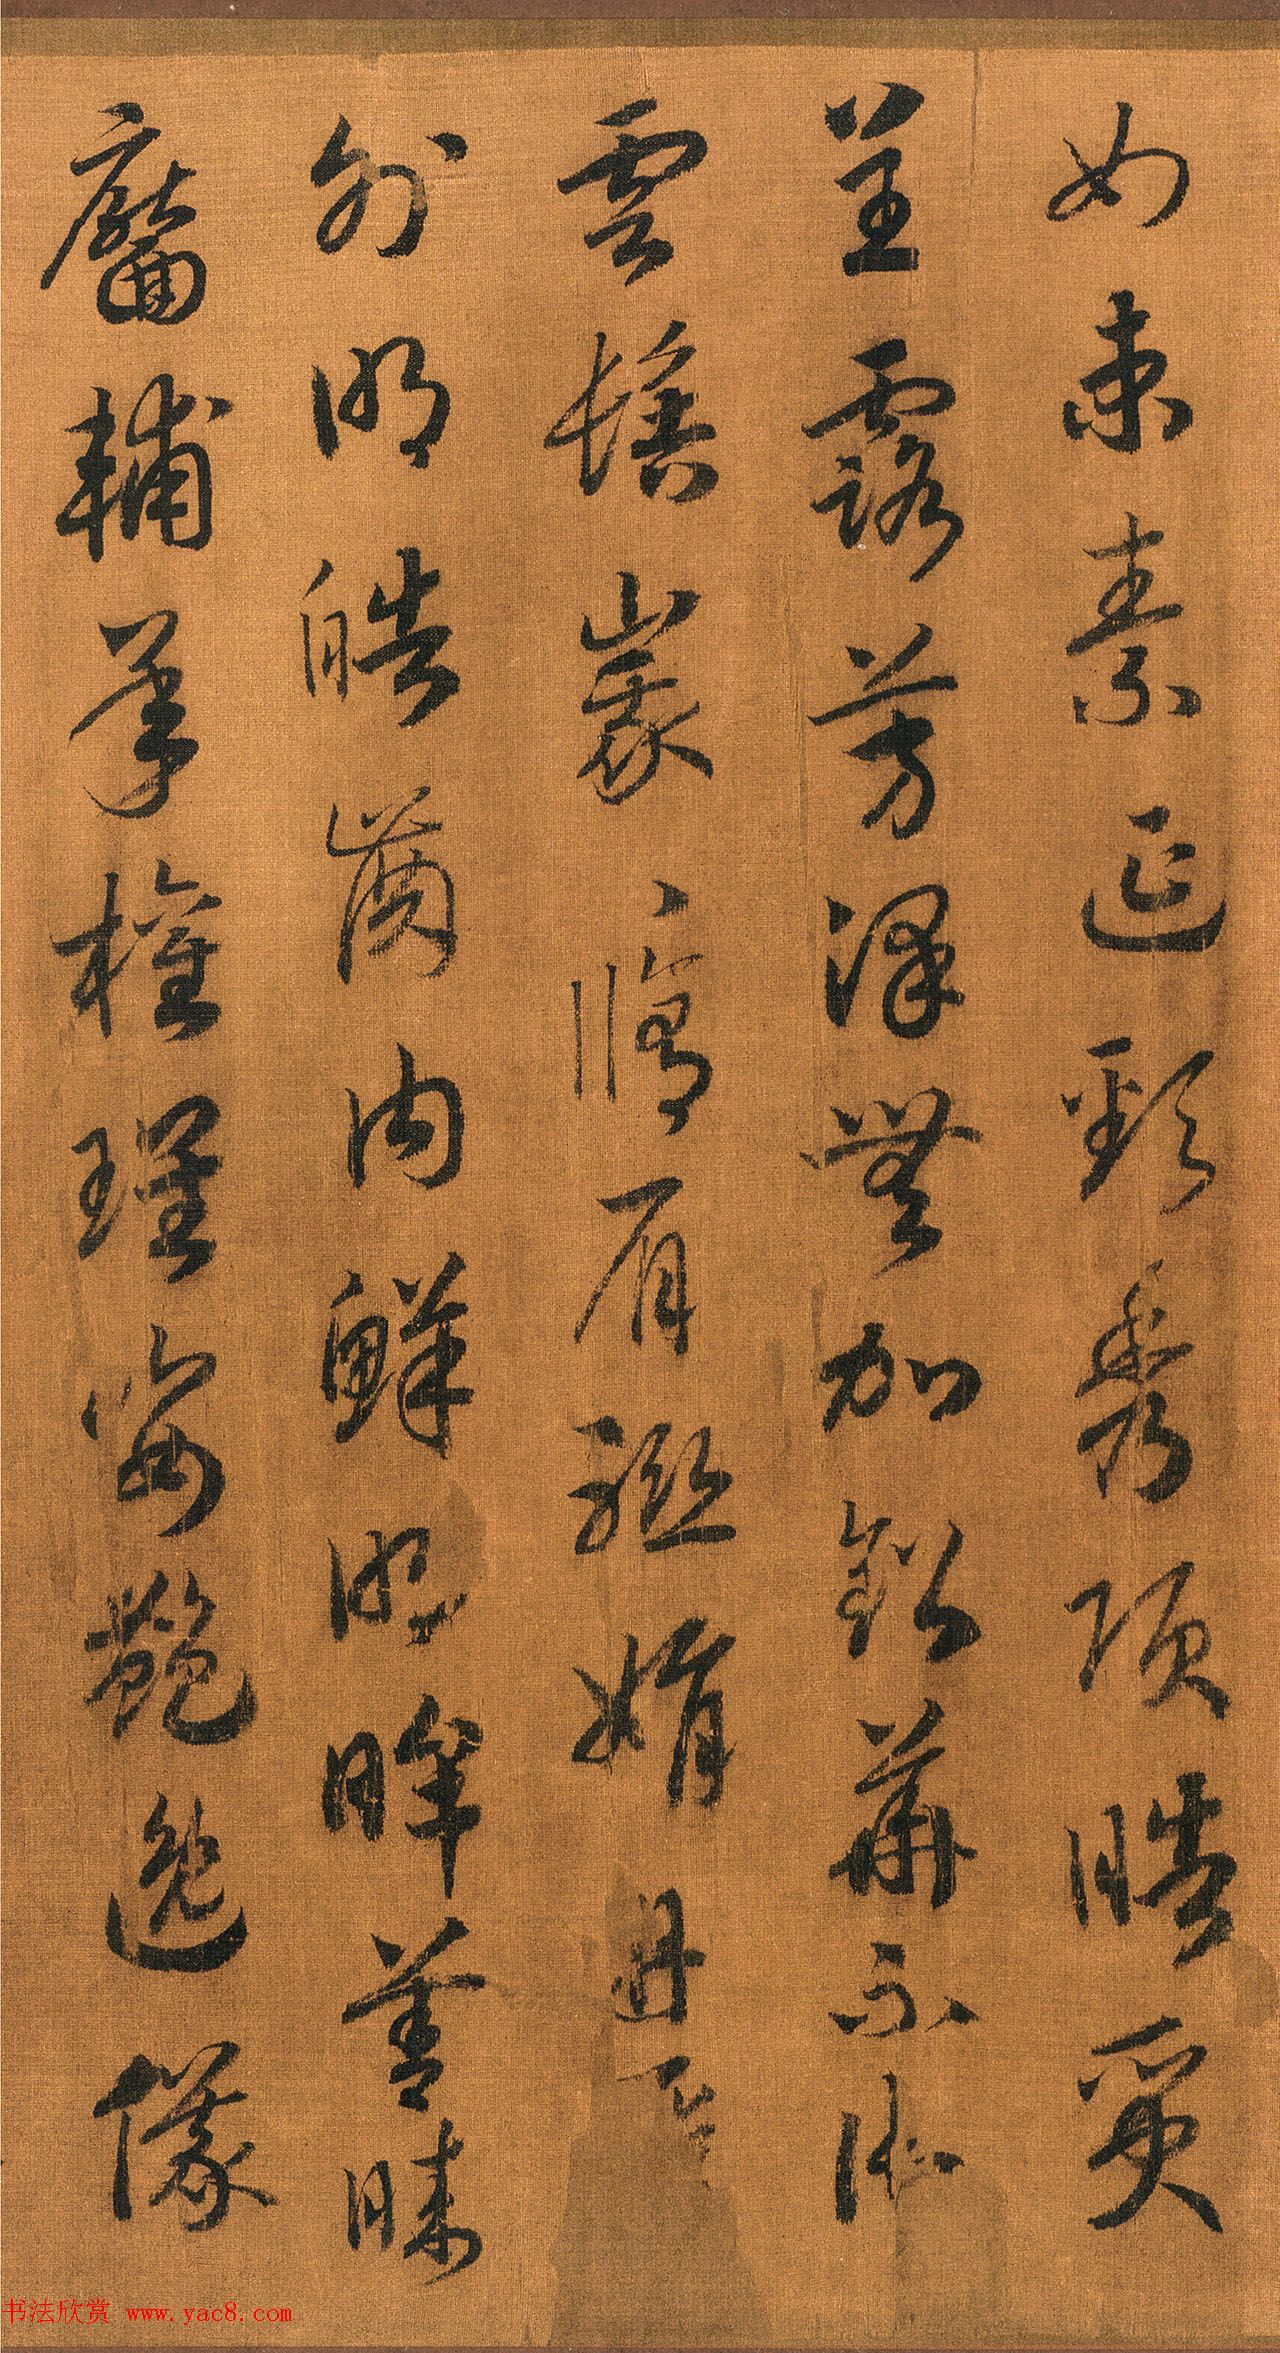 如束素延頸秀項皓質
呈露芳澤無加鉛華不御
雲髻峩〻脩眉聯娟丹脣
外朗皓齒內鮮明眸善睞
靨輔承權瓌姿艷逸儀
书法欣赏 www.yac8.com